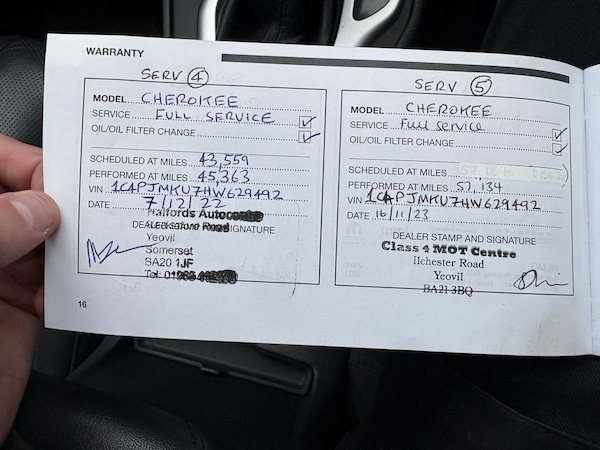 WARRANTY
SERV 4
MODEL CHEROKEE
SERVICE FULL SERVICE
OIL/OIL FILTER CHANGE
SCHEDULED AT MILES 43,559
PERFORMED AT MILES 45,363
VIN 1C4PJMKU7HW629492
DATE 7/12/22
Halfords Autocentre
DEALER STAMP AND SIGNATURE
Road
Yeovil
Somerset
BA20 1JF
Tel: 01935
16
SERV 5
MODEL CHEROKEE
SERVICE Full service
OIL/OIL FILTER CHANGE
SCHEDULED AT MILES
PERFORMED AT MILES 57,134
VIN 1C4PJMKU7HW629492
DATE 16/11/23
DEALER STAMP AND SIGNATURE
Class 4 MOT Centre
Ilchester Road
Yeovil
BA21 3BQ